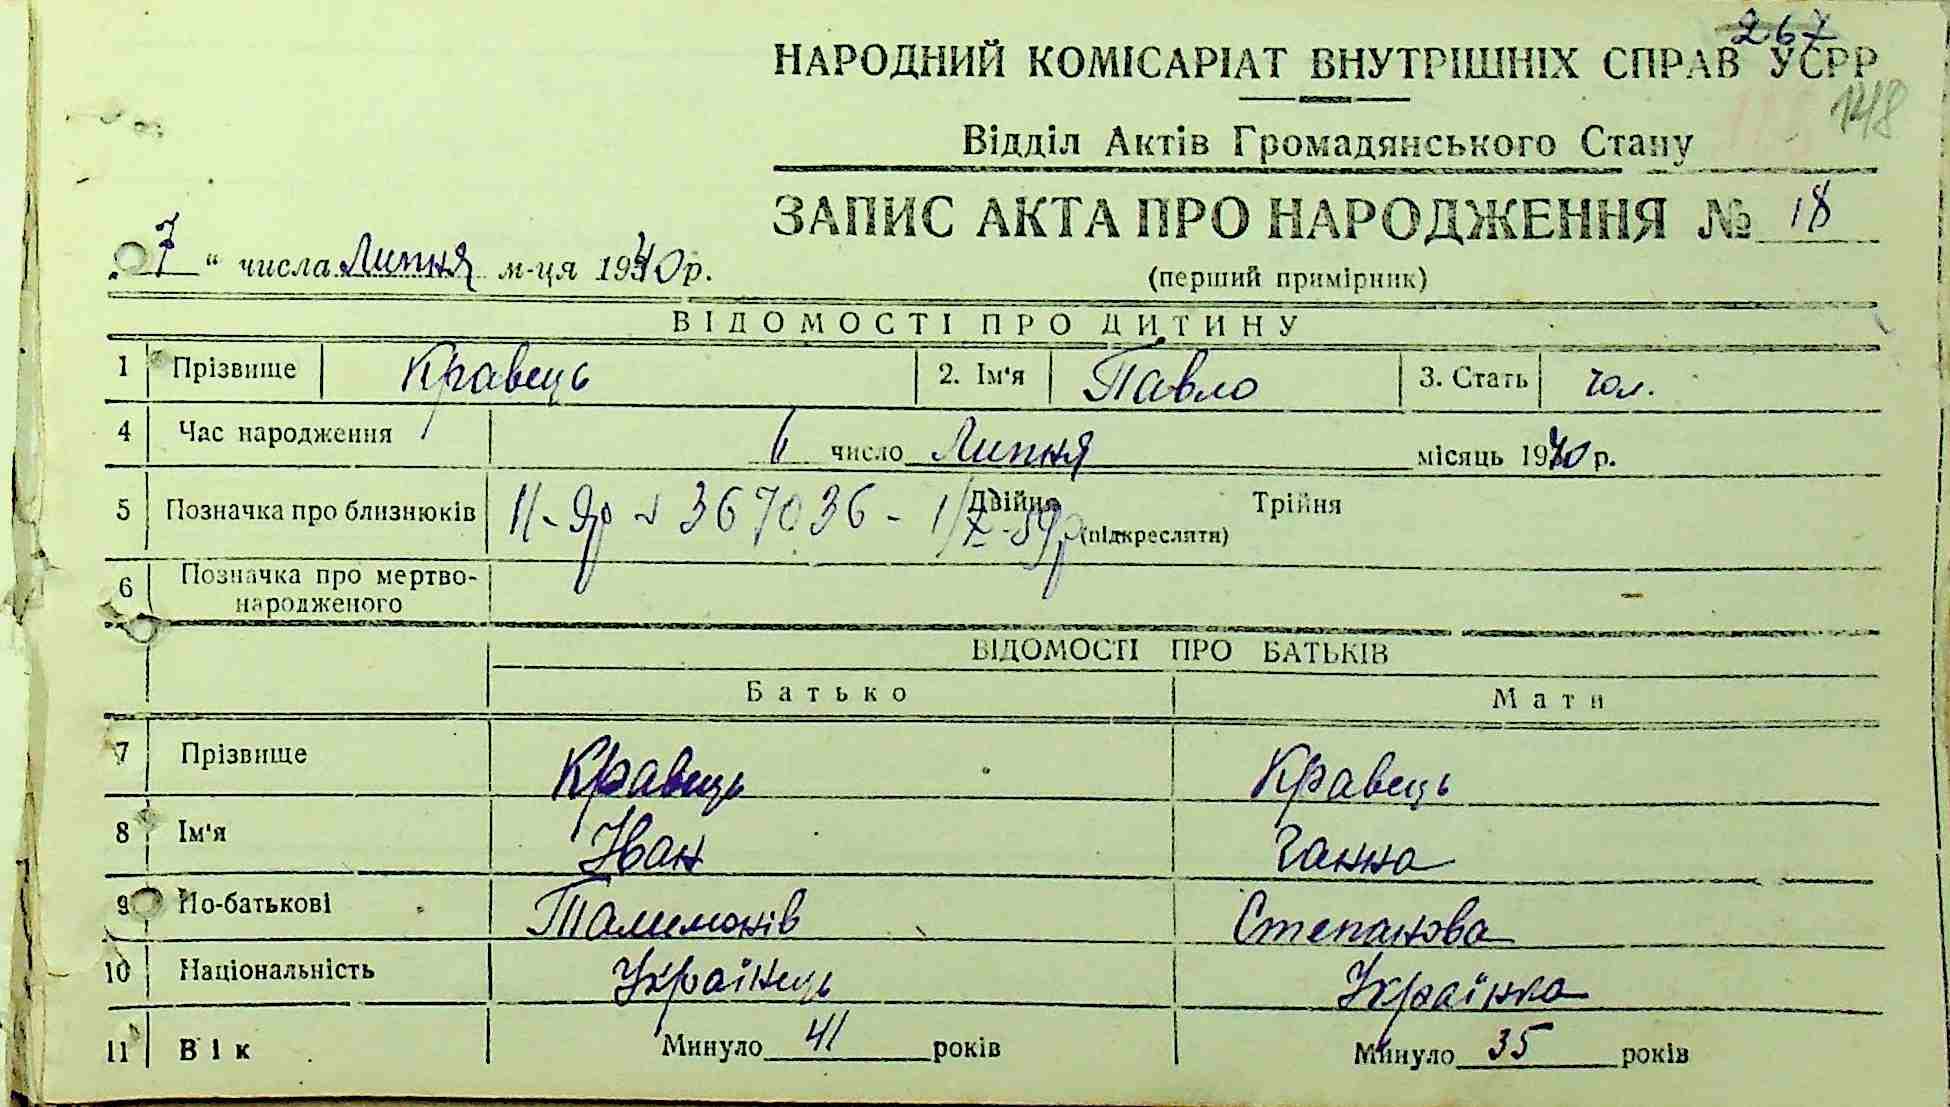 267
НАРОДНИЙ КОМІСАРІАТ ВНУТРІШНІХ СПРАВ УСРР
148
Відділ Актів Громадянського Стану
ЗАПИС АКТА ПРО НАРОДЖЕННЯ № 18
„7“ числа Липня м-ця 1940 р.
(перший примірник)
ВІДОМОСТІ ПРО ДИТИНУ
1 Прізвище Кравець 2. Ім'я Павло 3. Стать чол.
4 Час народження 6 число Липня місяць 1940 р.
5 Позначка про близнюків Двійня Трійня
367036
(підкреслити)
6 Позначка про мертво-
народженого
ВІДОМОСТІ ПРО БАТЬКІВ
Батько Мати
7 Прізвище Кравець Кравець
8 Ім'я Іван Ганна
9 По-батькові Степанова
10 Національність Українець Українка
11 Вік Минуло 41 років Минуло 35 років